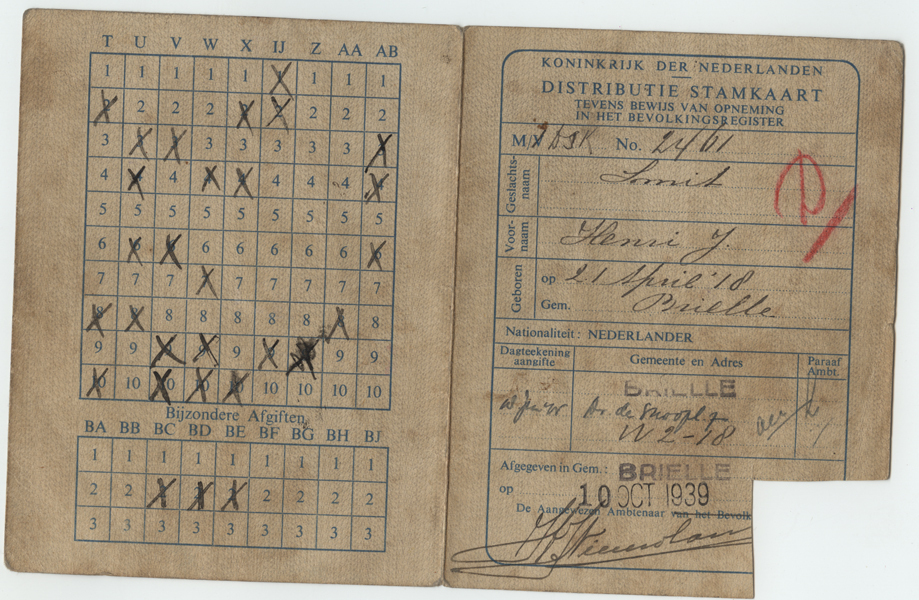 T U V W X IJ Z AA AB
1 1 1 1 1 1 1 1
2 2 2 2 2 2
3 3 3 3 3 3
4 4 4 4 4
5 5 5 5 5 5 5 5 5
6 6 6 6 6 6 6
7 7 7 7 7 7 7 7
8 8 8 8 8 8
9 9 9 9 9
10 10 10 10 10
Bijzondere Afgiften
BA BB BC BD BE BF BG BH BJ
1 1 1 1 1 1 1 1 1
2 2 2 2 2 2
3 3 3 3 3 3 3 3 3
KONINKRIJK DER NEDERLANDEN
DISTRIBUTIE STAMKAART
TEVENS BEWIJS VAN OPNEMING
IN HET BEVOLKINGSREGISTER
No. 2461
Geslachts-
naam
Smit
P
Voor-
naam
Henri J.
Geboren
op 21 April '18
Gem. Brielle
Nationaliteit: NEDERLANDER
Dagteekening
aangifte
Gemeente en Adres
Paraaf
Ambt.
BRIELLE
W 2-18
Afgegeven in Gem.: BRIELLE
op 10 OCT 1939
De Aangewezen Ambtenaar van het Bevolk